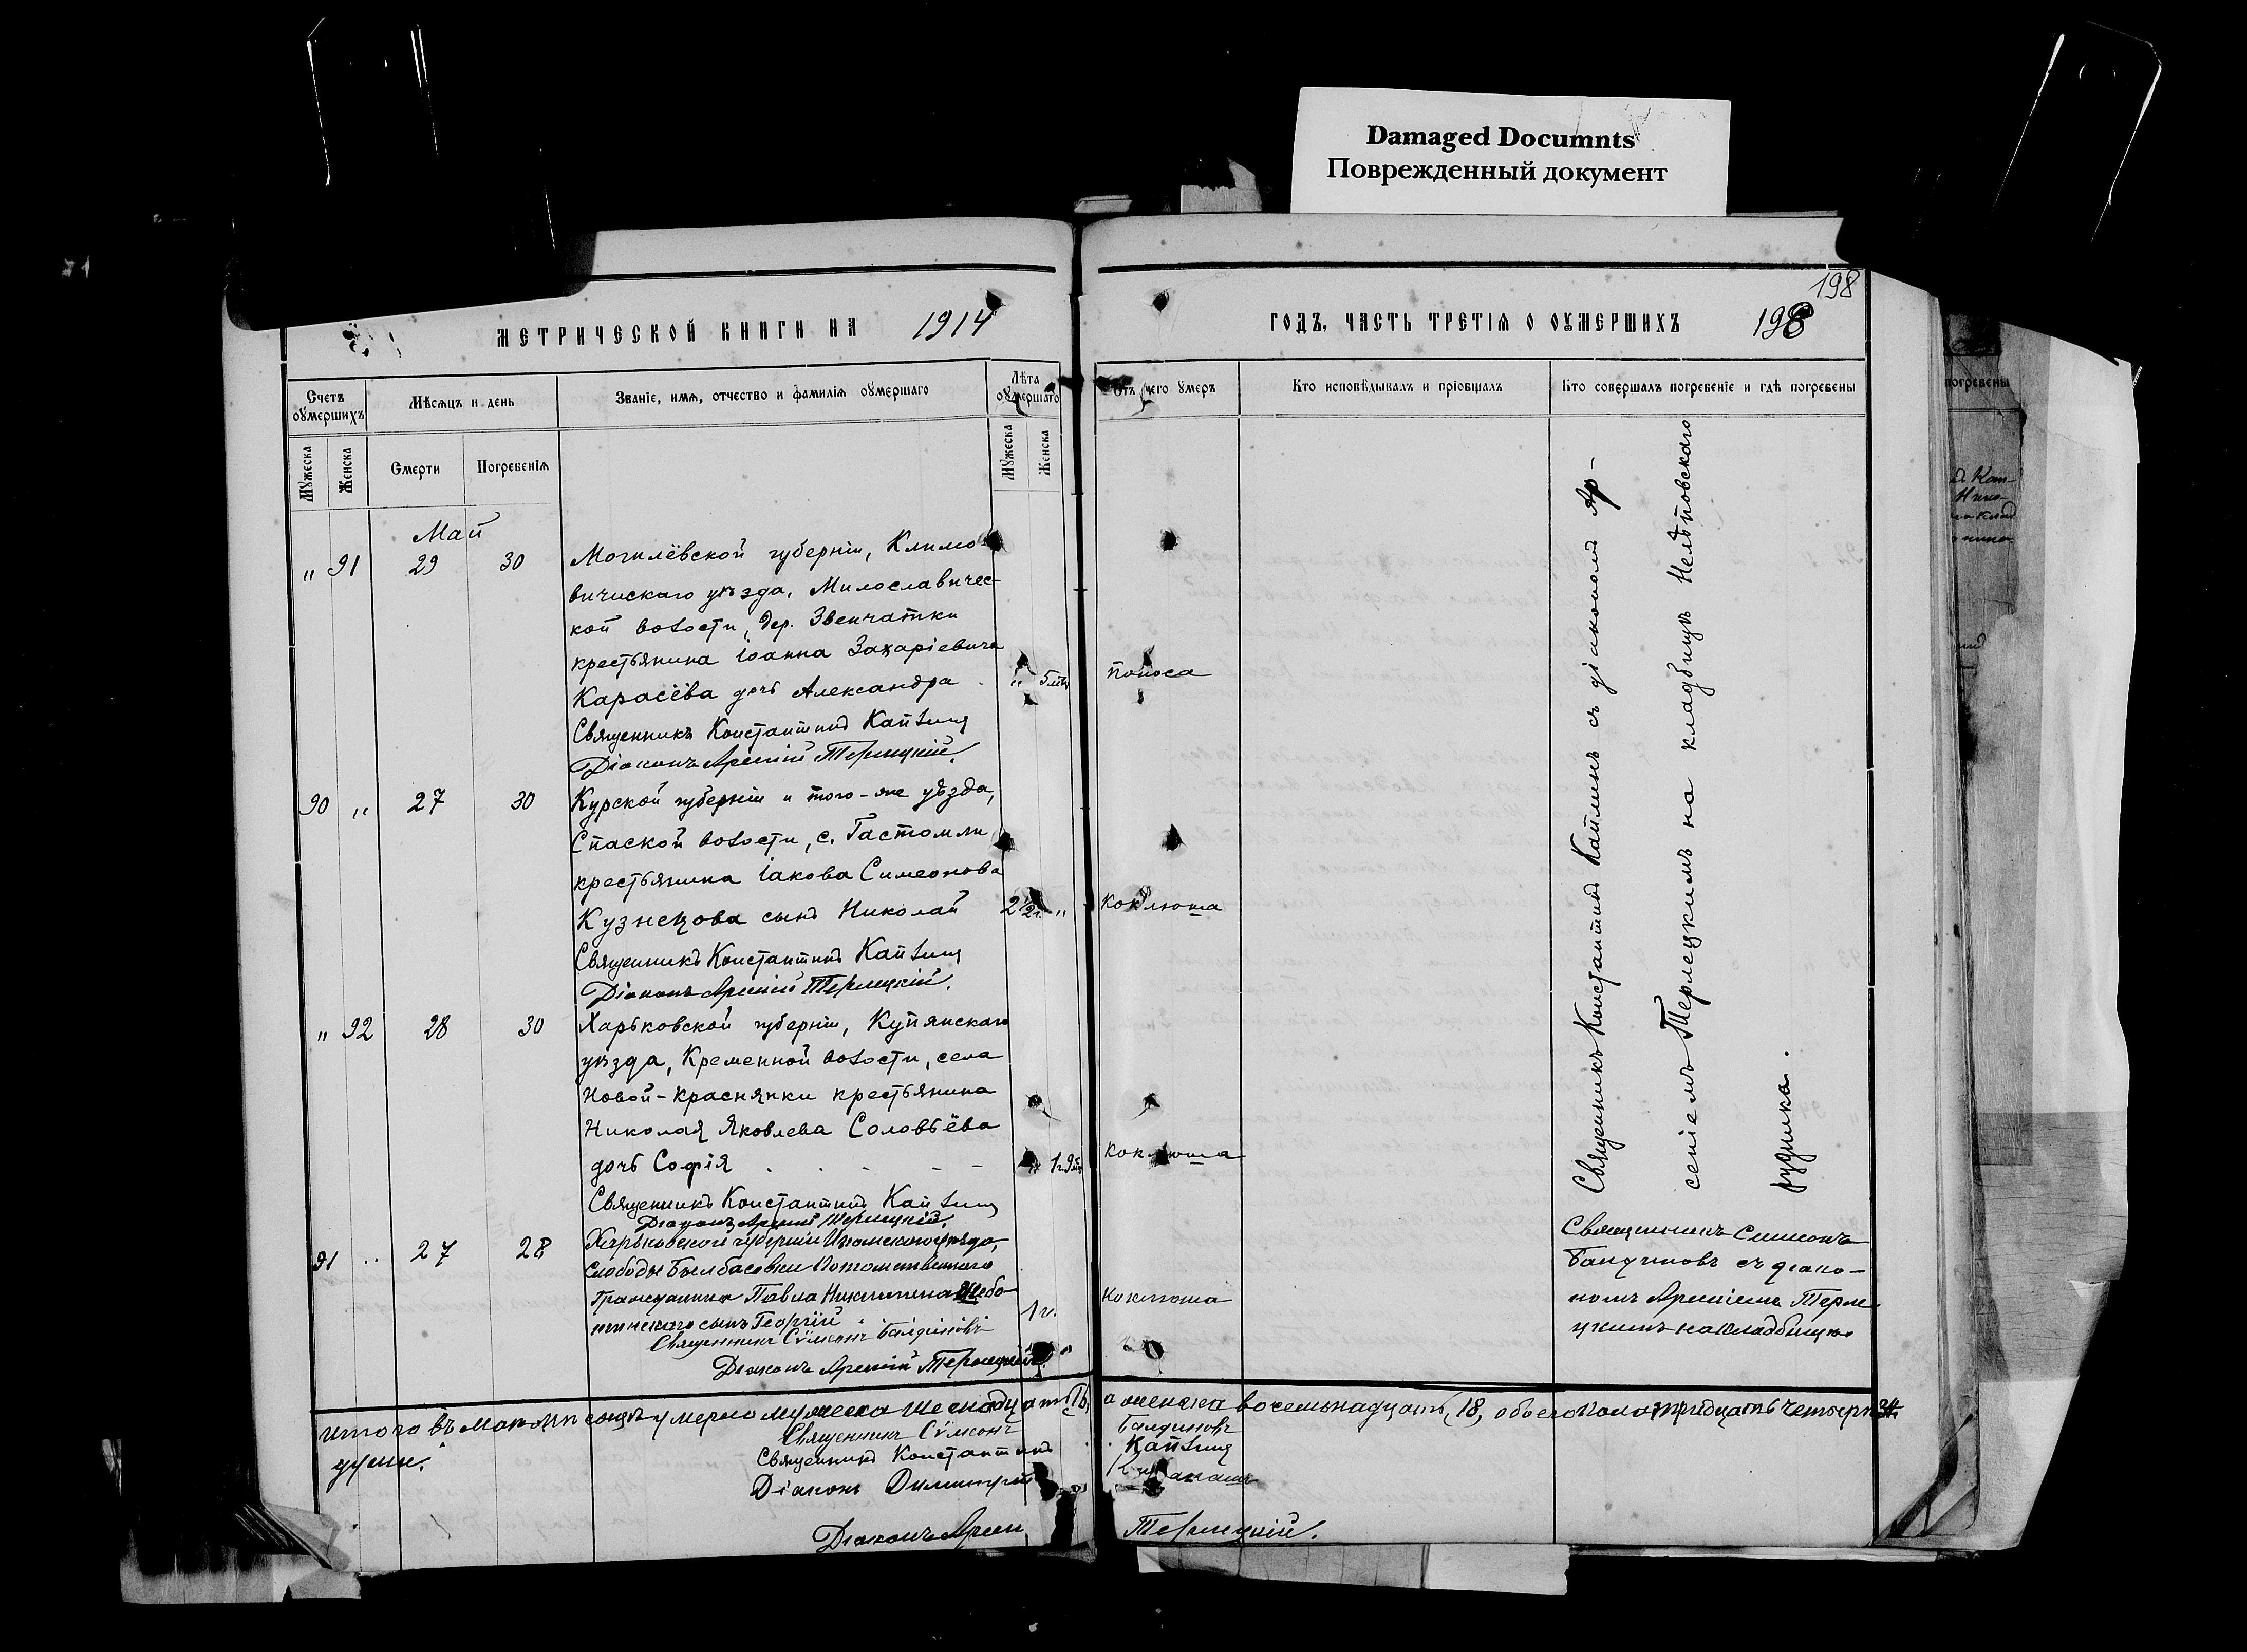 Damaged Documnts
Поврежденный документ
198
МЕТРИЧЕСКОЙ КНИГИ НА 1914
ГОДЪ, ЧАСТЬ ТРЕТІѦ О ОУМЕРШИХЪ 198
Счетъ оумершихъ
Мѣсѧцъ и день
Званіе, имѧ, отчество и фамиліѧ оумершаго
Лѣта оумершаго
Отъ чего умеръ
Кто исповѣдывалъ и пріобщалъ
Кто совершалъ погребеніе и гдѣ погребены
Мужеска
Женска
Смерти
Погребеніѧ
Мужеска
Женска
Май
" 91 29 30 Могилёвской губерніи, Климо-
вичискаго уѣзда, Милославичес-
кой волости, дер. Звенчатки
крестьянина Іоанна Захаріевича
Карасёва дочь Александра " 5 мѣс поноса
Священникъ Константинъ Каплинъ
Діаконъ Арсеній Терлецкій.
90 " 27 30 Курской губерніи и того-же уѣзда,
Спаской волости, с. Гастомли
крестьянина Іакова Симеонова
Кузнецова сынъ Николай 2½г. " коклюша
Священникъ Константинъ Каплинъ
Діаконъ Арсеній Терлецкій.
" 92 28 30 Харьковской губерніи, Купянскаго
уѣзда, Кременной волости, села
Новой-Краснянки крестьянина
Николая Яковлева Соловьёва
дочь Софія " 1г. 9м коклюша
Священникъ Константинъ Каплинъ
Діаконъ Арсеній Терлецкій.
Священникъ Константинъ Каплинъ съ діакономъ Ар-
сеніемъ Терлецкимъ на кладбищѣ Нелѣповскаго
рудника.
91 .. 27 28 Харьковской губерніи Изюмскаго уѣзда,
Слободы Былбасовки Потомственнаго
Гражданина Павла Никитина
сынъ Георгій 1 г. коклюша
Священникъ Сѵмеонъ Балдиновъ
Діаконъ Арсеній Терлецкій.
Священникъ Симеонъ
Балдиновъ съ діако-
номъ Арсеніемъ Терле
цкимъ на кладбищѣ
Итого въ маѣ мѣсяцѣ умерло мужеска шестнадцать, 16, а женска восемьнадцать, 18, обоего пола тридцать четыре 34.
души.
Священникъ Сѵмеонъ Балдиновъ
Священникъ Константинъ Каплинъ
Діаконъ Димитрій
Діаконъ Арсен Терлецкій.
погребены